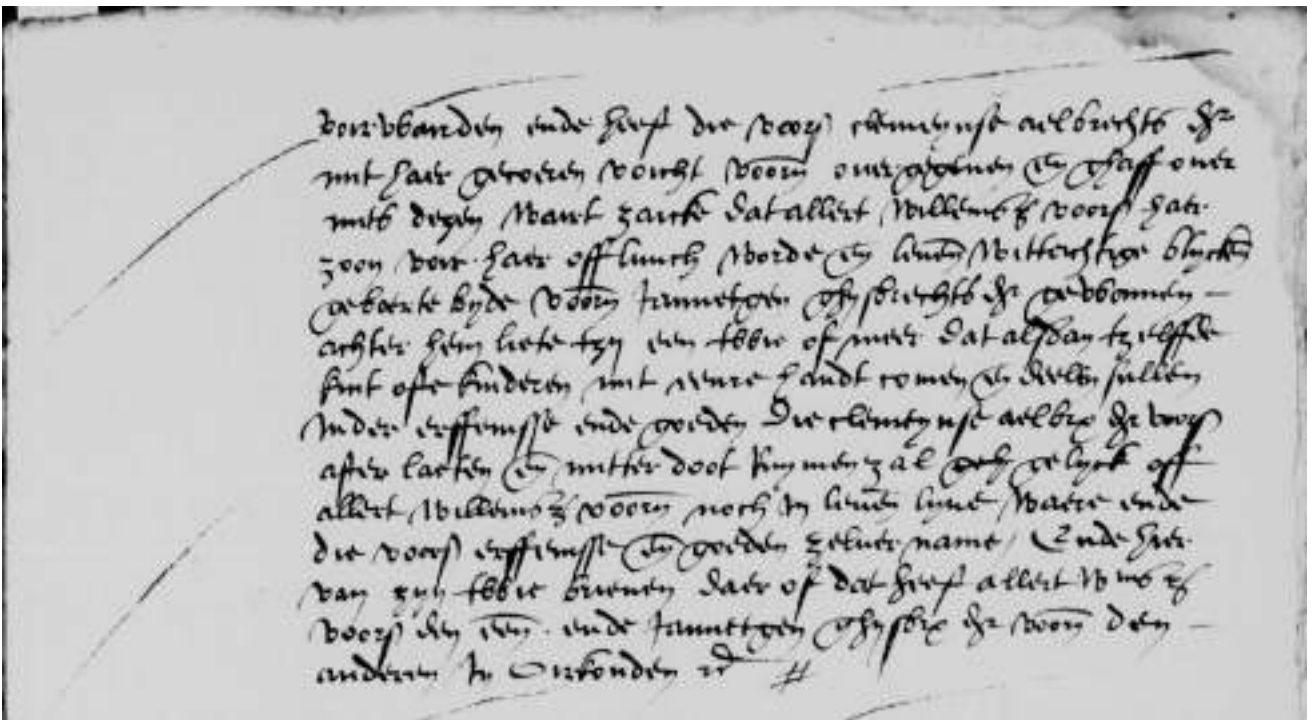 voirwairden ende heeft die voors clemeynse aelbrechts dr
mit haer gecoeren voicht voorn overgegeven en ghaff over
mits dezen Wairt zaicke dat allert Willemsz voors haer
zoon voir haer afflivich worde en levende Wittechtige blycken
geboerte byde voorn Jannetgen ghysbrechts dr gewonnen
achter hem liete tzy een twie of meer dat alsdan tzelffde
kint ofte kinderen mit eenre handt comen en deelen sullen
Inder erffenisse ende goeden Die clemeynse aelbrs dr voors
after laeten en mitter doot Ruymen zal gelyck off
allert Willemsz voorn noch In leven lyve Waere ende
die voors erffenisse en goeden zelver name / Ende hier
van zyn twie brieven daer of dat heeft allert Wmsz
voors den een ende Jannetgen ghysbrs dr voorn den
anderen In Oirkonden